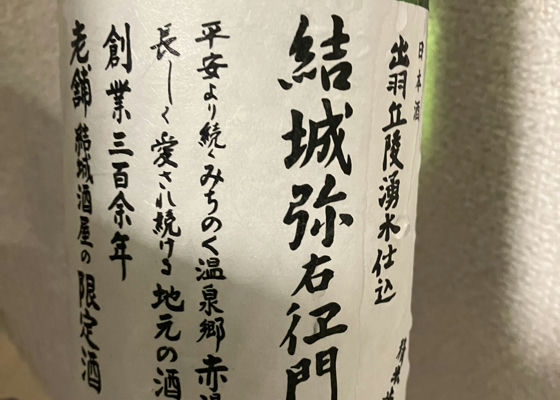 日本酒
出羽丘陵湧水仕込
結城弥右衛門
平安より続くみちのく温泉郷赤湯
長しく愛され続ける地元の酒
創業三百余年
老舗結城酒屋の限定酒